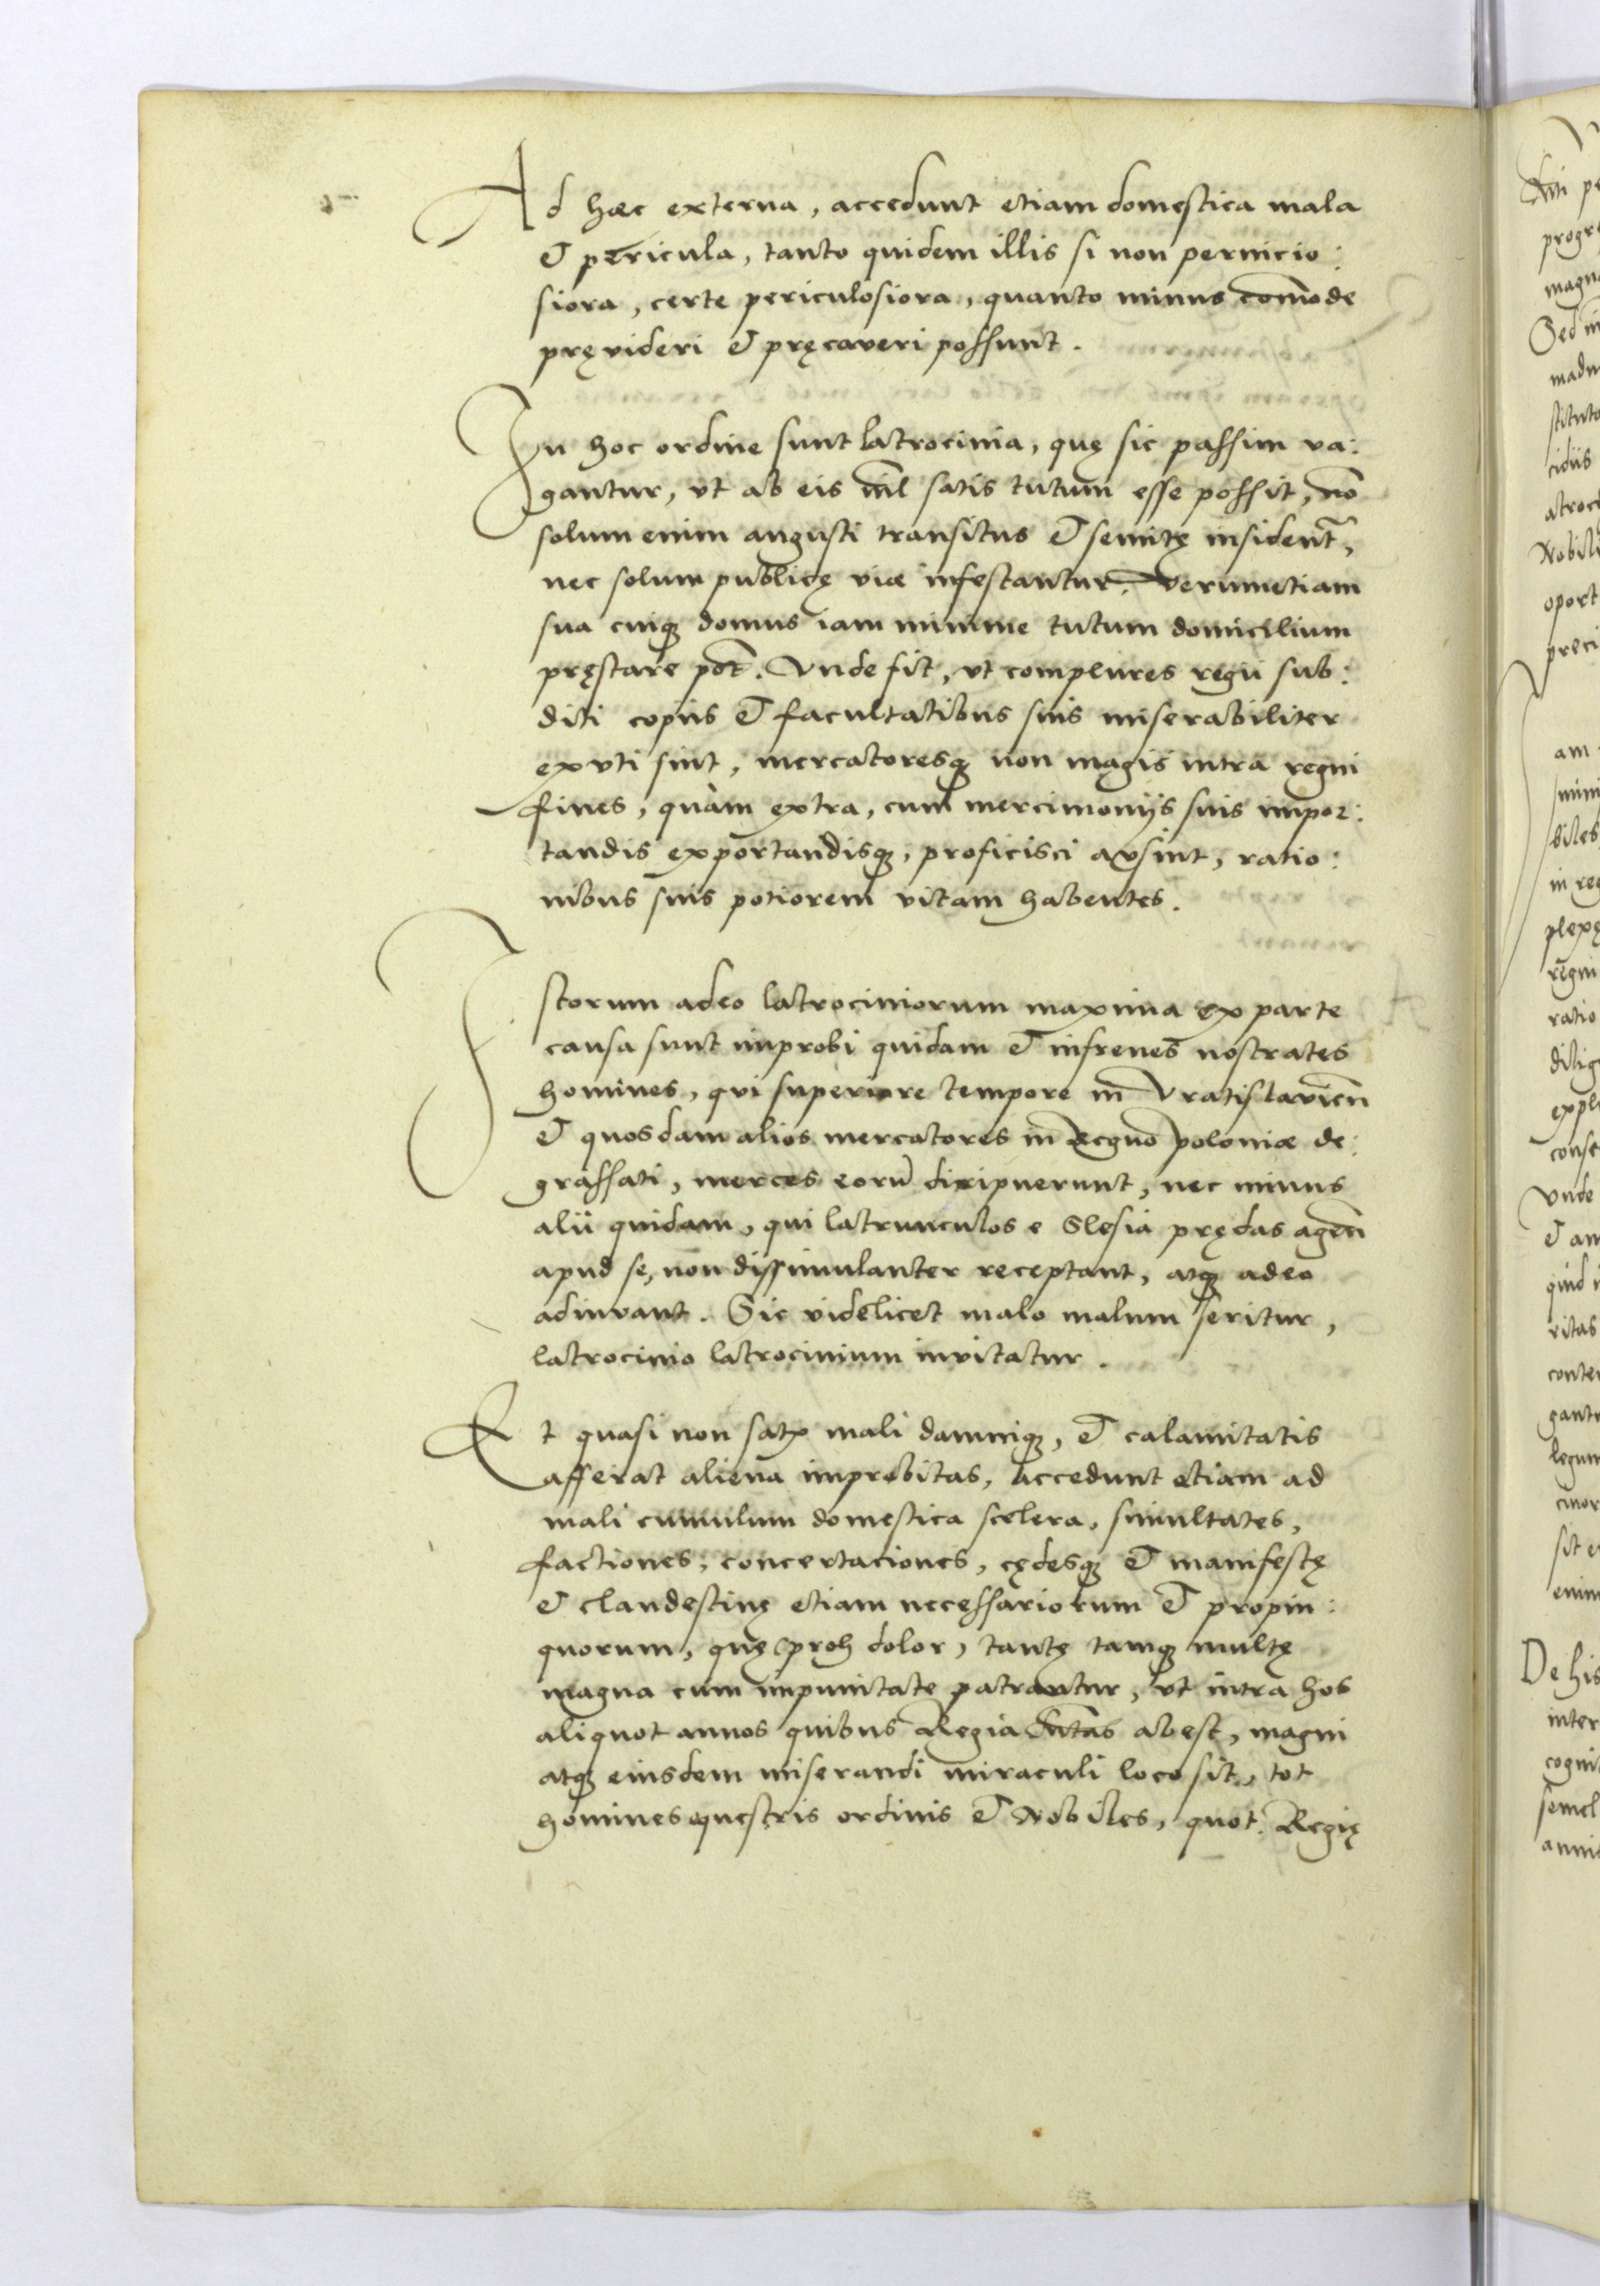 Ad haec externa, accedunt etiam domestica mala
et pericula, tanto quidem illis si non pernicio:
siora, certe periculosiora, quanto minus com̄ode
pręvideri et pręcaveri possunt.
In hoc ordine sunt latrocinia, quę sic passim va:
gantur, vt ab eis nīl satis tutum esse possit, nō
solum enim angusti transitus et semitę insident̄,
nec solum publicę viae infestantur. Verumetiam
sua cuiq₃ domus iam minime tutum domicilium
pręstare pōt. Vnde fit, vt complures regii sub:
diti copiis et facultatibus suis miserabiliter
exuti sint, mercatoresq₃ non magis intra regni
fines, quàm extra, cum mercimoniis suis impor:
tandis exportandisq₃, proficisci ausint, ratio:
nibus suis potiorem vitam habentes.
Istorum adeo latrociniorum maxima ex parte
causa sunt improbi quidam et infrenes nostrates
homines, qui superiore tempore in Vratislavien̄
et quosdam alios mercatores in Regno Poloniae de:
grassati, merces eorū diripuerunt, nec minus
alii quidam, qui latrunculos e Slesia prędas agen̄
apud se, non dissimulanter receptant, atq₃ adeo
adiuvant. Sic videlicet malo malum seritur,
latrocinio latrocinium invitatur.
Et quasi non satis mali damniq₃, et calamitatis
afferat aliena improbitas, accedunt etiam ad
mali cumulum domestica scelera, simultates,
factiones, concertaciones, cędesq₃ et manifestę
et clandestinę etiam necessariorum et propin:
quorum, quę (proh dolor) tantę tamq₃ multę
magna cum impunitate patrantur, vt intra hos
aliquot annos quibus Regia abest, magni
atq₃ eiusdem miserandi miraculi loco sit, tot
homines equestris ordinis et Nobiles, quot Regię